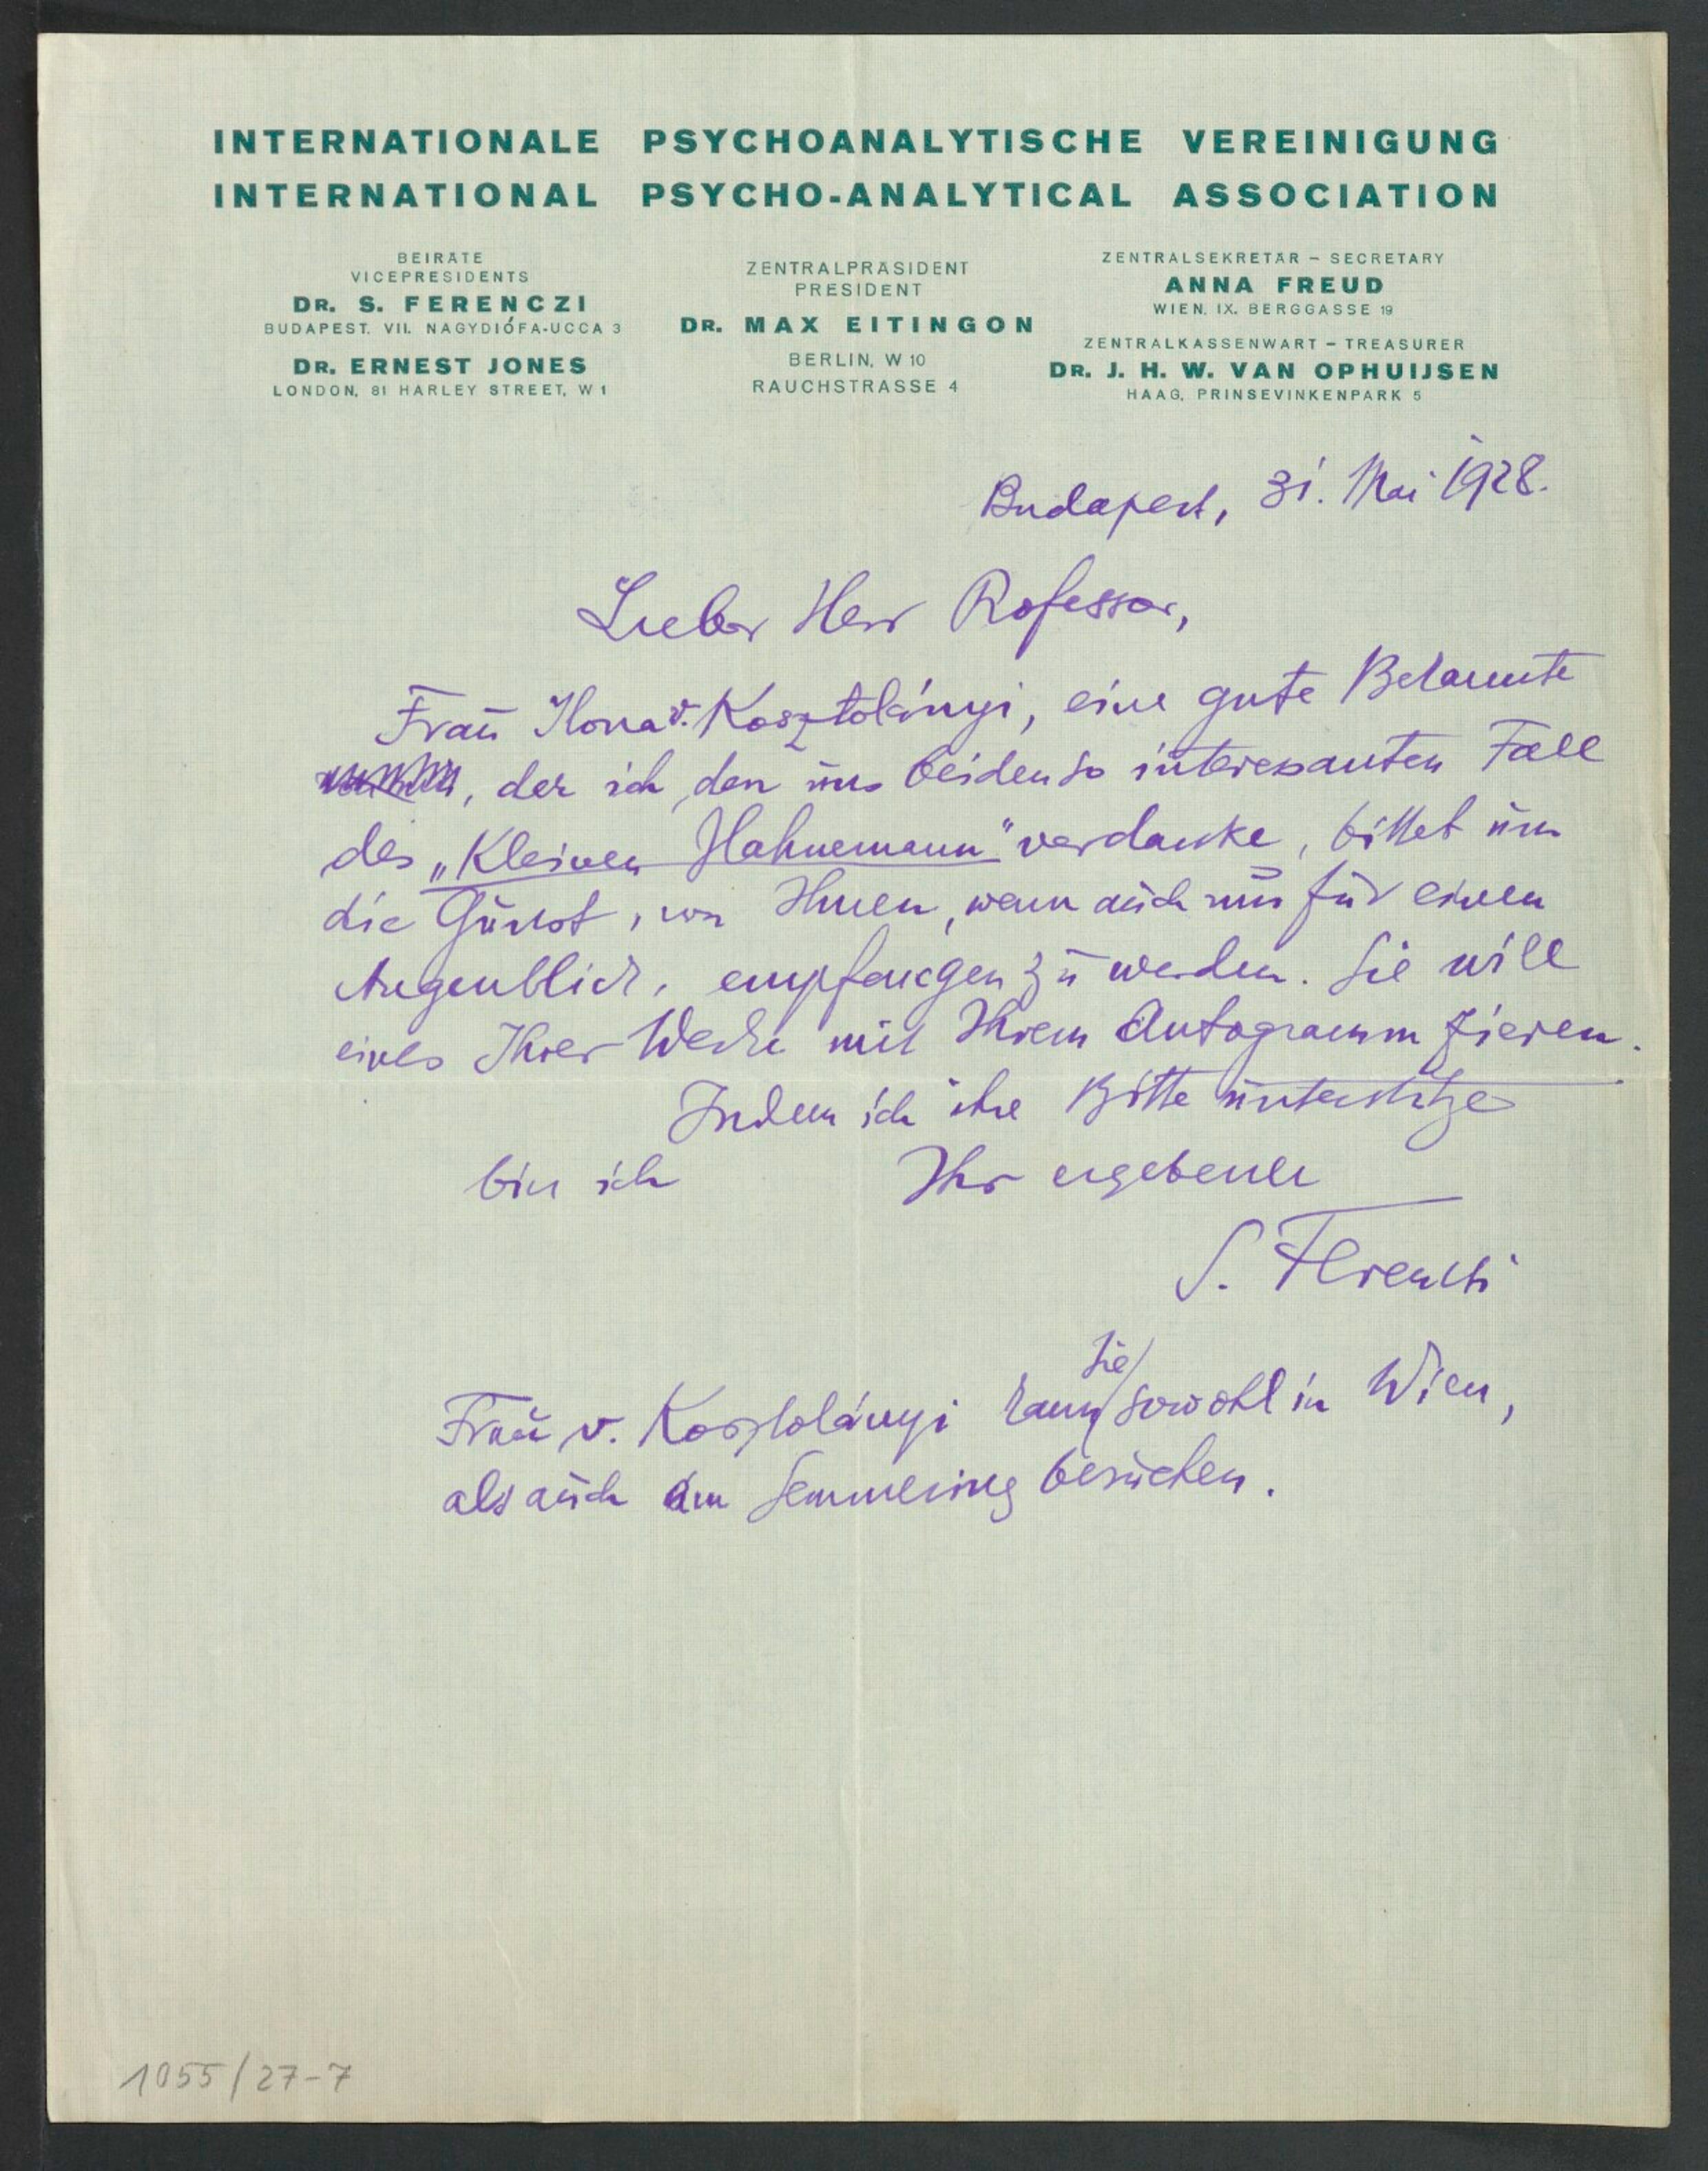 INTERNATIONALE PSYCHOANALYTISCHE VEREINIGUNG
INTERNATIONAL PSYCHO-ANALYTICAL ASSOCIATION
BEIRÄTE
VICEPRESIDENTS
DR. S. FERENCZI
BUDAPEST. VII. NAGYDIÓFA-UCCA 3
DR. ERNEST JONES
LONDON, 81 HARLEY STREET, W 1
ZENTRALPRÄSIDENT
PRESIDENT
DR. MAX EITINGON
BERLIN, W 10
RAUCHSTRASSE 4
ZENTRALSEKRETÄR – SECRETARY
ANNA FREUD
WIEN, IX. BERGGASSE 19
ZENTRALKASSENWART – TREASURER
DR. J. H. W. VAN OPHUIJSEN
HAAG, PRINSEVINKENPARK 5
Budapest, 31. Mai 1928.
Lieber Herr Professor,
Frau Ilona v. Kosztolányi, eine gute Bekannte
, der ich den uns beiden so interessanten Fall
des „Kleinen Hahnemann" verdanke, bittet um
die Gunst, von Ihnen, wenn auch nur für einen
Augenblick, empfangen zu werden. Sie will
eines Ihrer Werke mit Ihrem Autogramm zieren.
Indem ich ihre Bitte unterstütze
bin ich Ihr ergebener
S. Ferenczi
Frau v. Kosztolányi kann Sie sowohl in Wien,
als auch am Semmering besuchen.
1055/27-7